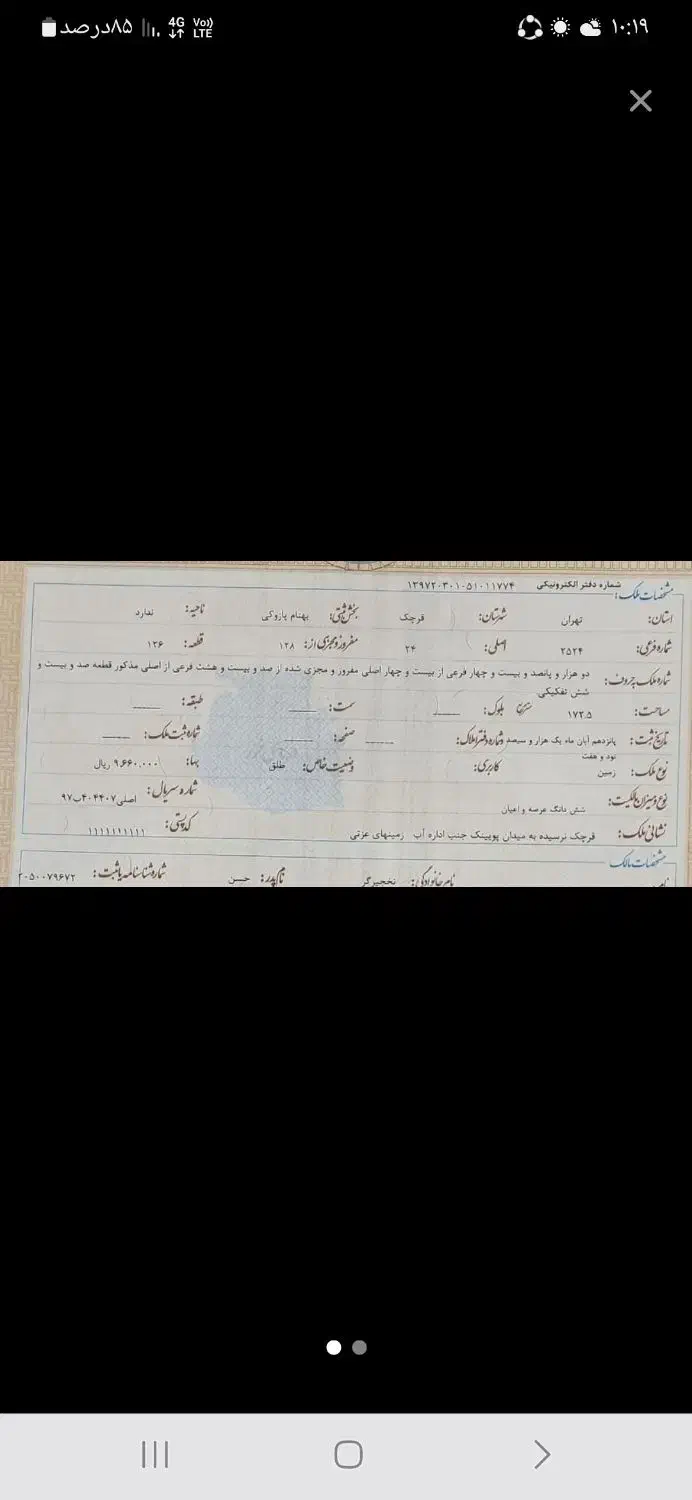 ۱۰:۱۹
۸۵درصد
4G
Vo))
LTE
شماره دفتر الکترونیکی ۱۳۹۷۲۰۳۰۱۰۵۱۰۱۱۷۷۴
مشخصات ملک:
استان: تهران شهرستان: قرچک بخش ثبتی: بهنام پازوکی ناحیه: ندارد
شماره فرعی: ۲۵۲۴ اصلی: ۲۴ مفروز و مجزی از: ۱۲۸ قطعه: ۱۲۶
شماره ملک بحروف: دو هزار و پانصد و بیست و چهار فرعی از بیست و چهار اصلی مفرور و مجزی شده از صد و بیست و هشت فرعی از اصلی مذکور قطعه صد و بیست و
شش تفکیکی
مساحت: ۱۷۲.۵ مترمربع بلوک: سمت: طبقه:
تاریخ ثبت: پانزدهم آبان ماه یک هزار و سیصد و نود و هفت شماره دفتر املاک: صفحه: شماره ثبت ملک:
نوع ملک: زمین کاربری: وضعیت خاص: طلق بها: ۹,۶۶۰,۰۰۰ ریال
نوع و میزان مالکیت: شش دانگ عرصه و اعیان شماره سریال: اصلی۴۰۴۴۰۷ب۹۷
نشانی ملک: قرچک نرسیده به میدان پوپینک جنب اداره آب زمینهای عزتی کد پستی: ۱۱۱۱۱۱۱۱۱۱
مشخصات مالک
نام خانوادگی: نخجیرگر نام پدر: حسن شماره شناسنامه یا ثبت: ۲۰۵۰۰۷۹۶۷۲